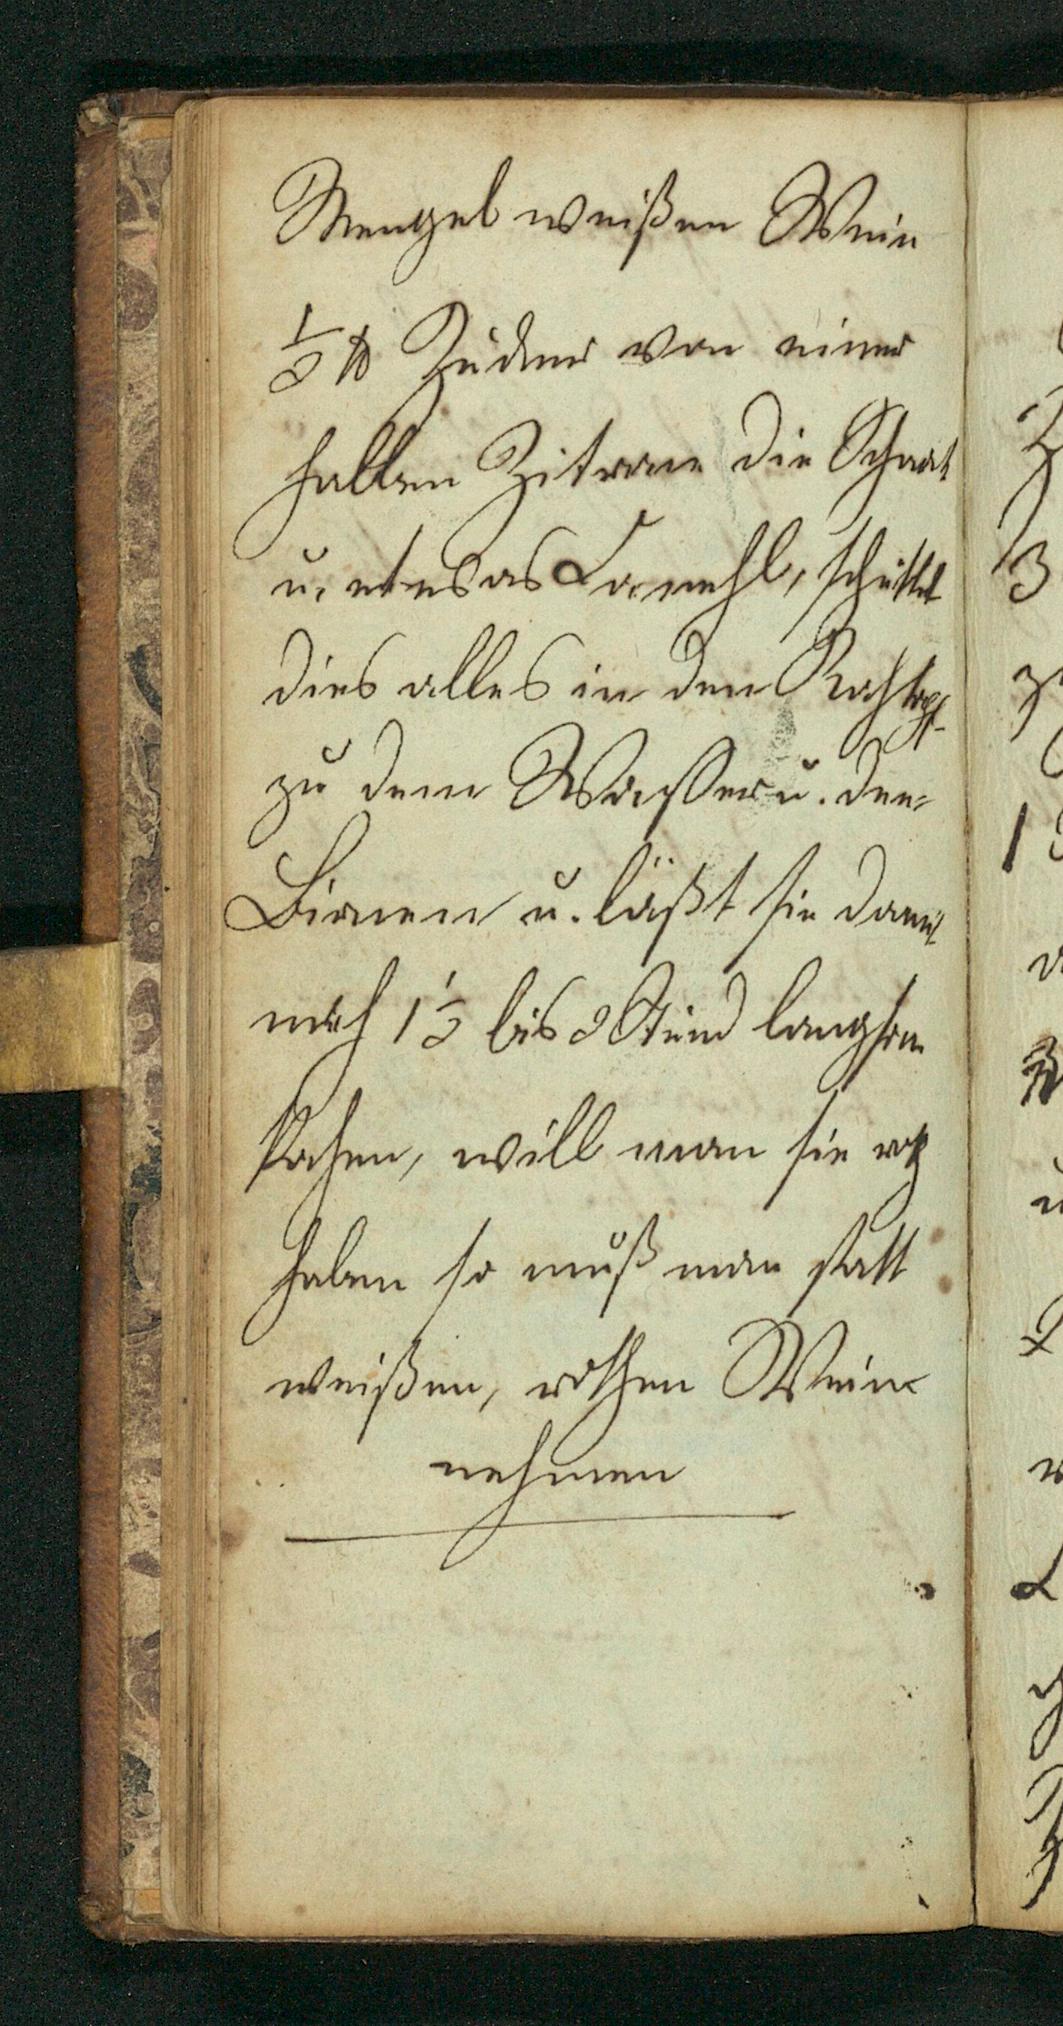 Mengel weißen Wein
½ ℔ Zucker von einer
halben Zitrone die Schaat
u. etwas Canehl, schüttet
dies alles in den Kochtopf
zu dem Wasser u. den
Birnen u. läßt sie damit
noch 1½ bis 2 Stund langsam
kochen, will man sie roth
haben so muß man statt
weißen, rothen Wein
nehmen